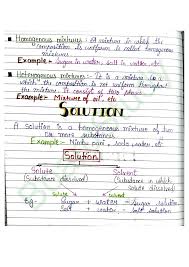 Homogenous mixtures:- A mixture in which the
composition is uniform is called homogenous
mixtures.
Example - Sugar in water, salt in water, etc.
Heterogenous mixtures:- It is a mixture in
which the composition is not uniform throughout
the mixture. It consist of two phase
Example:- Mixture of oil, etc.
SOLUTION
A solution is a homogenous mixture of two
or more substances.
Example:- Nimbu pani, soda water etc
Solution
Solute Solvent
(Substance dissolved) (Substance in which
solute dissolved)
solute solvent
Eg. Sugar + water → Sugar solution
Salt + water → Salt solution